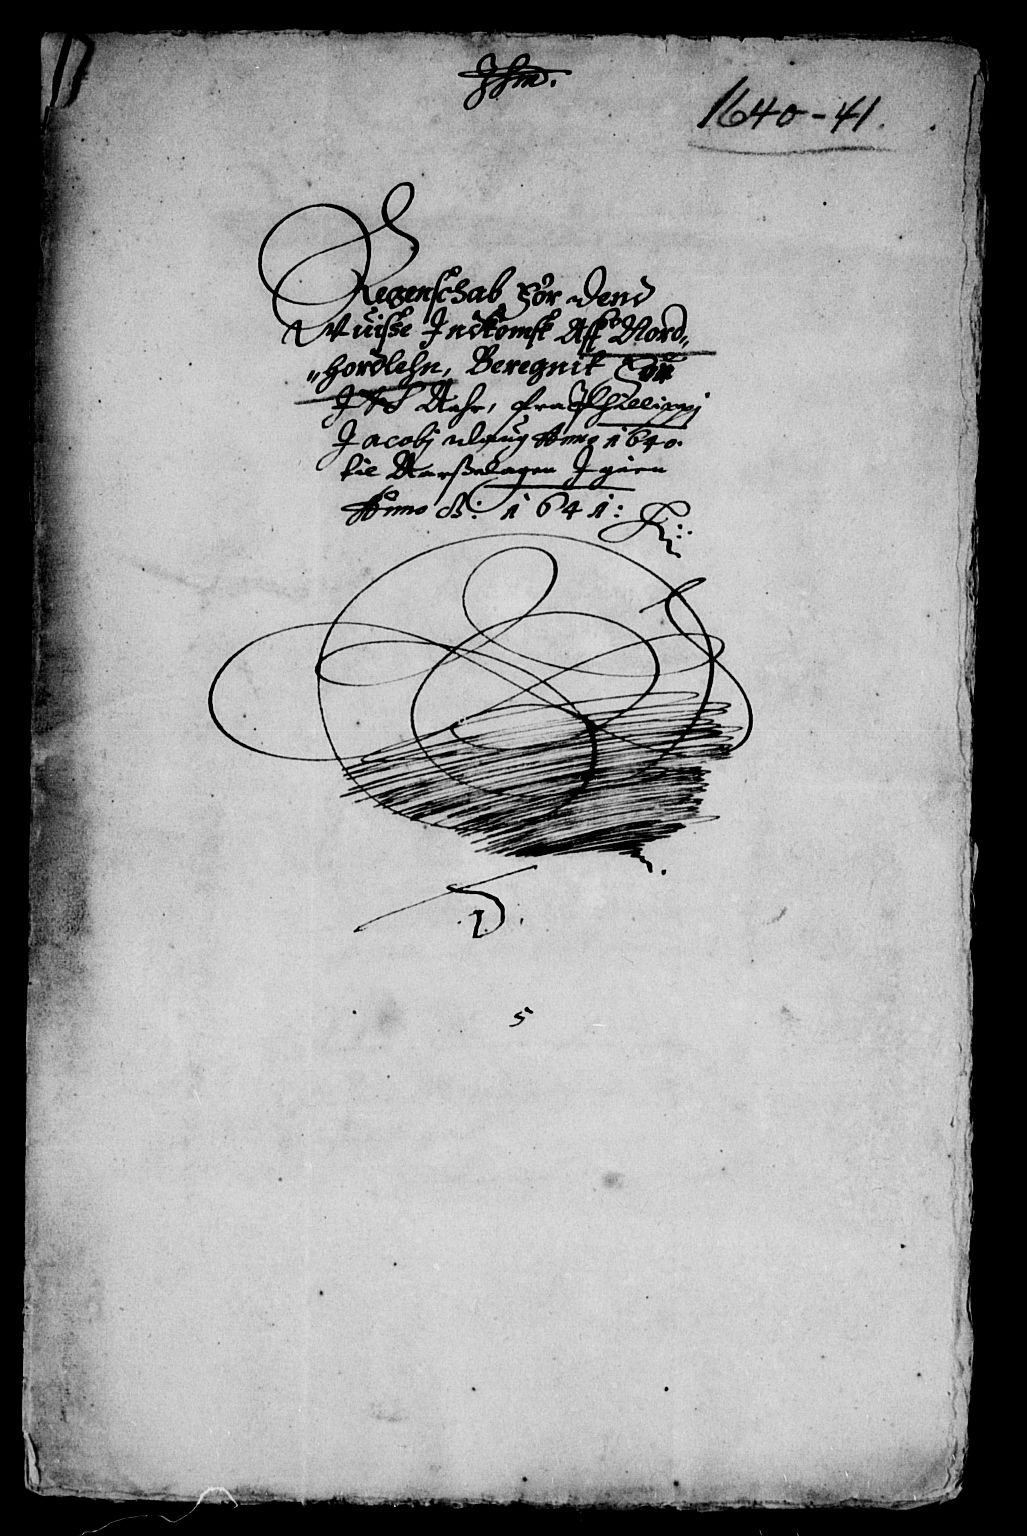 1640-41.
Regenschab för dend
Wuisße Indkomst Aff Nord„
„hordlehn, Beregnit för
Itt Aahr, fra Philippi
Jacobj daug Anno 1640.
til Aarßdagen Igien
Anno &: 1641:
5